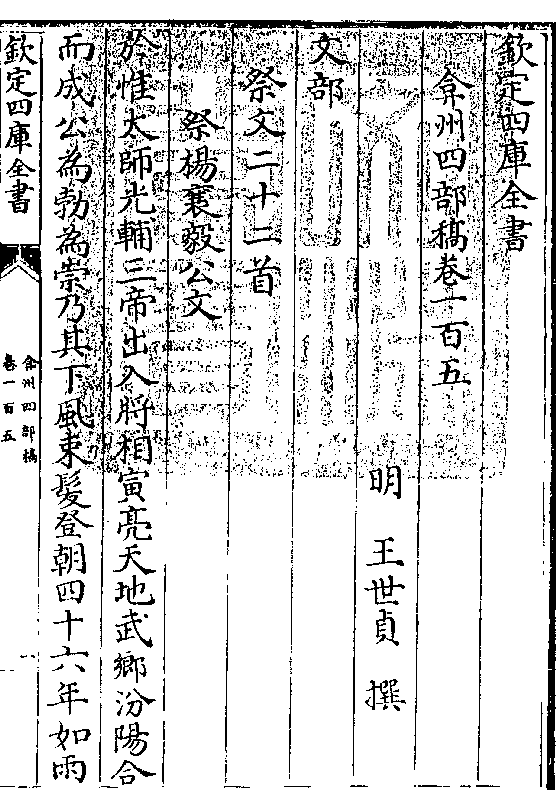 欽定四庫全書
弇州四部稿卷一百五
明 王世貞 撰
文部
祭文二十二首
祭楊襄毅公文
於惟太師光輔三帝出入將相寅亮天地武鄉汾陽合
而成公為勃為崇乃其下風束髮登朝四十六年如雨
欽定四庫全書
弇州四部稿
卷一百五